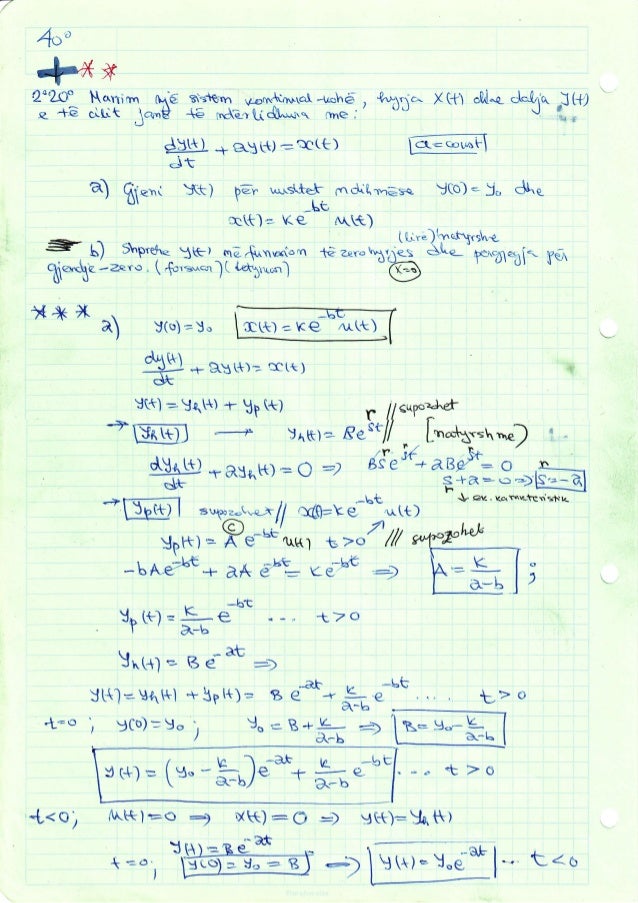 40°
+ * *
2°20° Marrim një sistem kontinual-kohë, hyrja x(t) dhe dalja y(t)
e të cilit janë të ndërlidhura me:
dy(t)/dt + ay(t) = x(t) [a = const]
a) Gjeni y(t) për kushtet ndihmëse y(0) = y₀ dhe
x(t) = Ke^{-bt} u(t)
(lirë) natyrshme
b) Shprehe y(t) në funksion të zero hyrjes dhe përgjegja për
(x=0)
gjendje-zero. (forsuar) (detyruar)
* * *
a) y(0) = y₀ [x(t) = Ke^{-bt} u(t)]
dy(t)/dt + ay(t) = x(t)
y(t) = yh(t) + yp(t)
→ [yh(t)] → yh(t) = Be^{st} r // supozohet [natyrshme)
dyh(t)/dt + ayh(t) = 0 ⇒ Bse^{st} + aBe^{st} = 0
s + a = 0 ⇒ [s = -a] r
r ↓ ek. karakteristik
→ [yp(t)] supozohet // x(t) = ke^{-bt} u(t)
yp(t) = A e^{-bt} u(t) t > 0 /// supozohet
(C)
-bAe^{-bt} + aA e^{-bt} = Ke^{-bt} ⇒ [A = K/(a-b)] ;
yp(t) = K/(a-b) e^{-bt} ... t > 0
yh(t) = B e^{-at} ⇒
y(t) = yh(t) + yp(t) = B e^{-at} + k/(a-b) e^{-bt} .... t > 0
t=0 ; y(0) = y₀ ; y₀ = B + k/(a-b) ⇒ [B = y₀ - k/(a-b)]
[y(t) = (y₀ - k/(a-b)) e^{-at} + k/(a-b) e^{-bt}] ... t > 0
t<0; u(t) = 0 ⇒ x(t) = 0 ⇒ y(t) = yh(t)
y(t) = Be^{-at}
t=0; [y(0) = y₀ = B] ⇒ [y(t) = y₀e^{-at}] ... t < 0